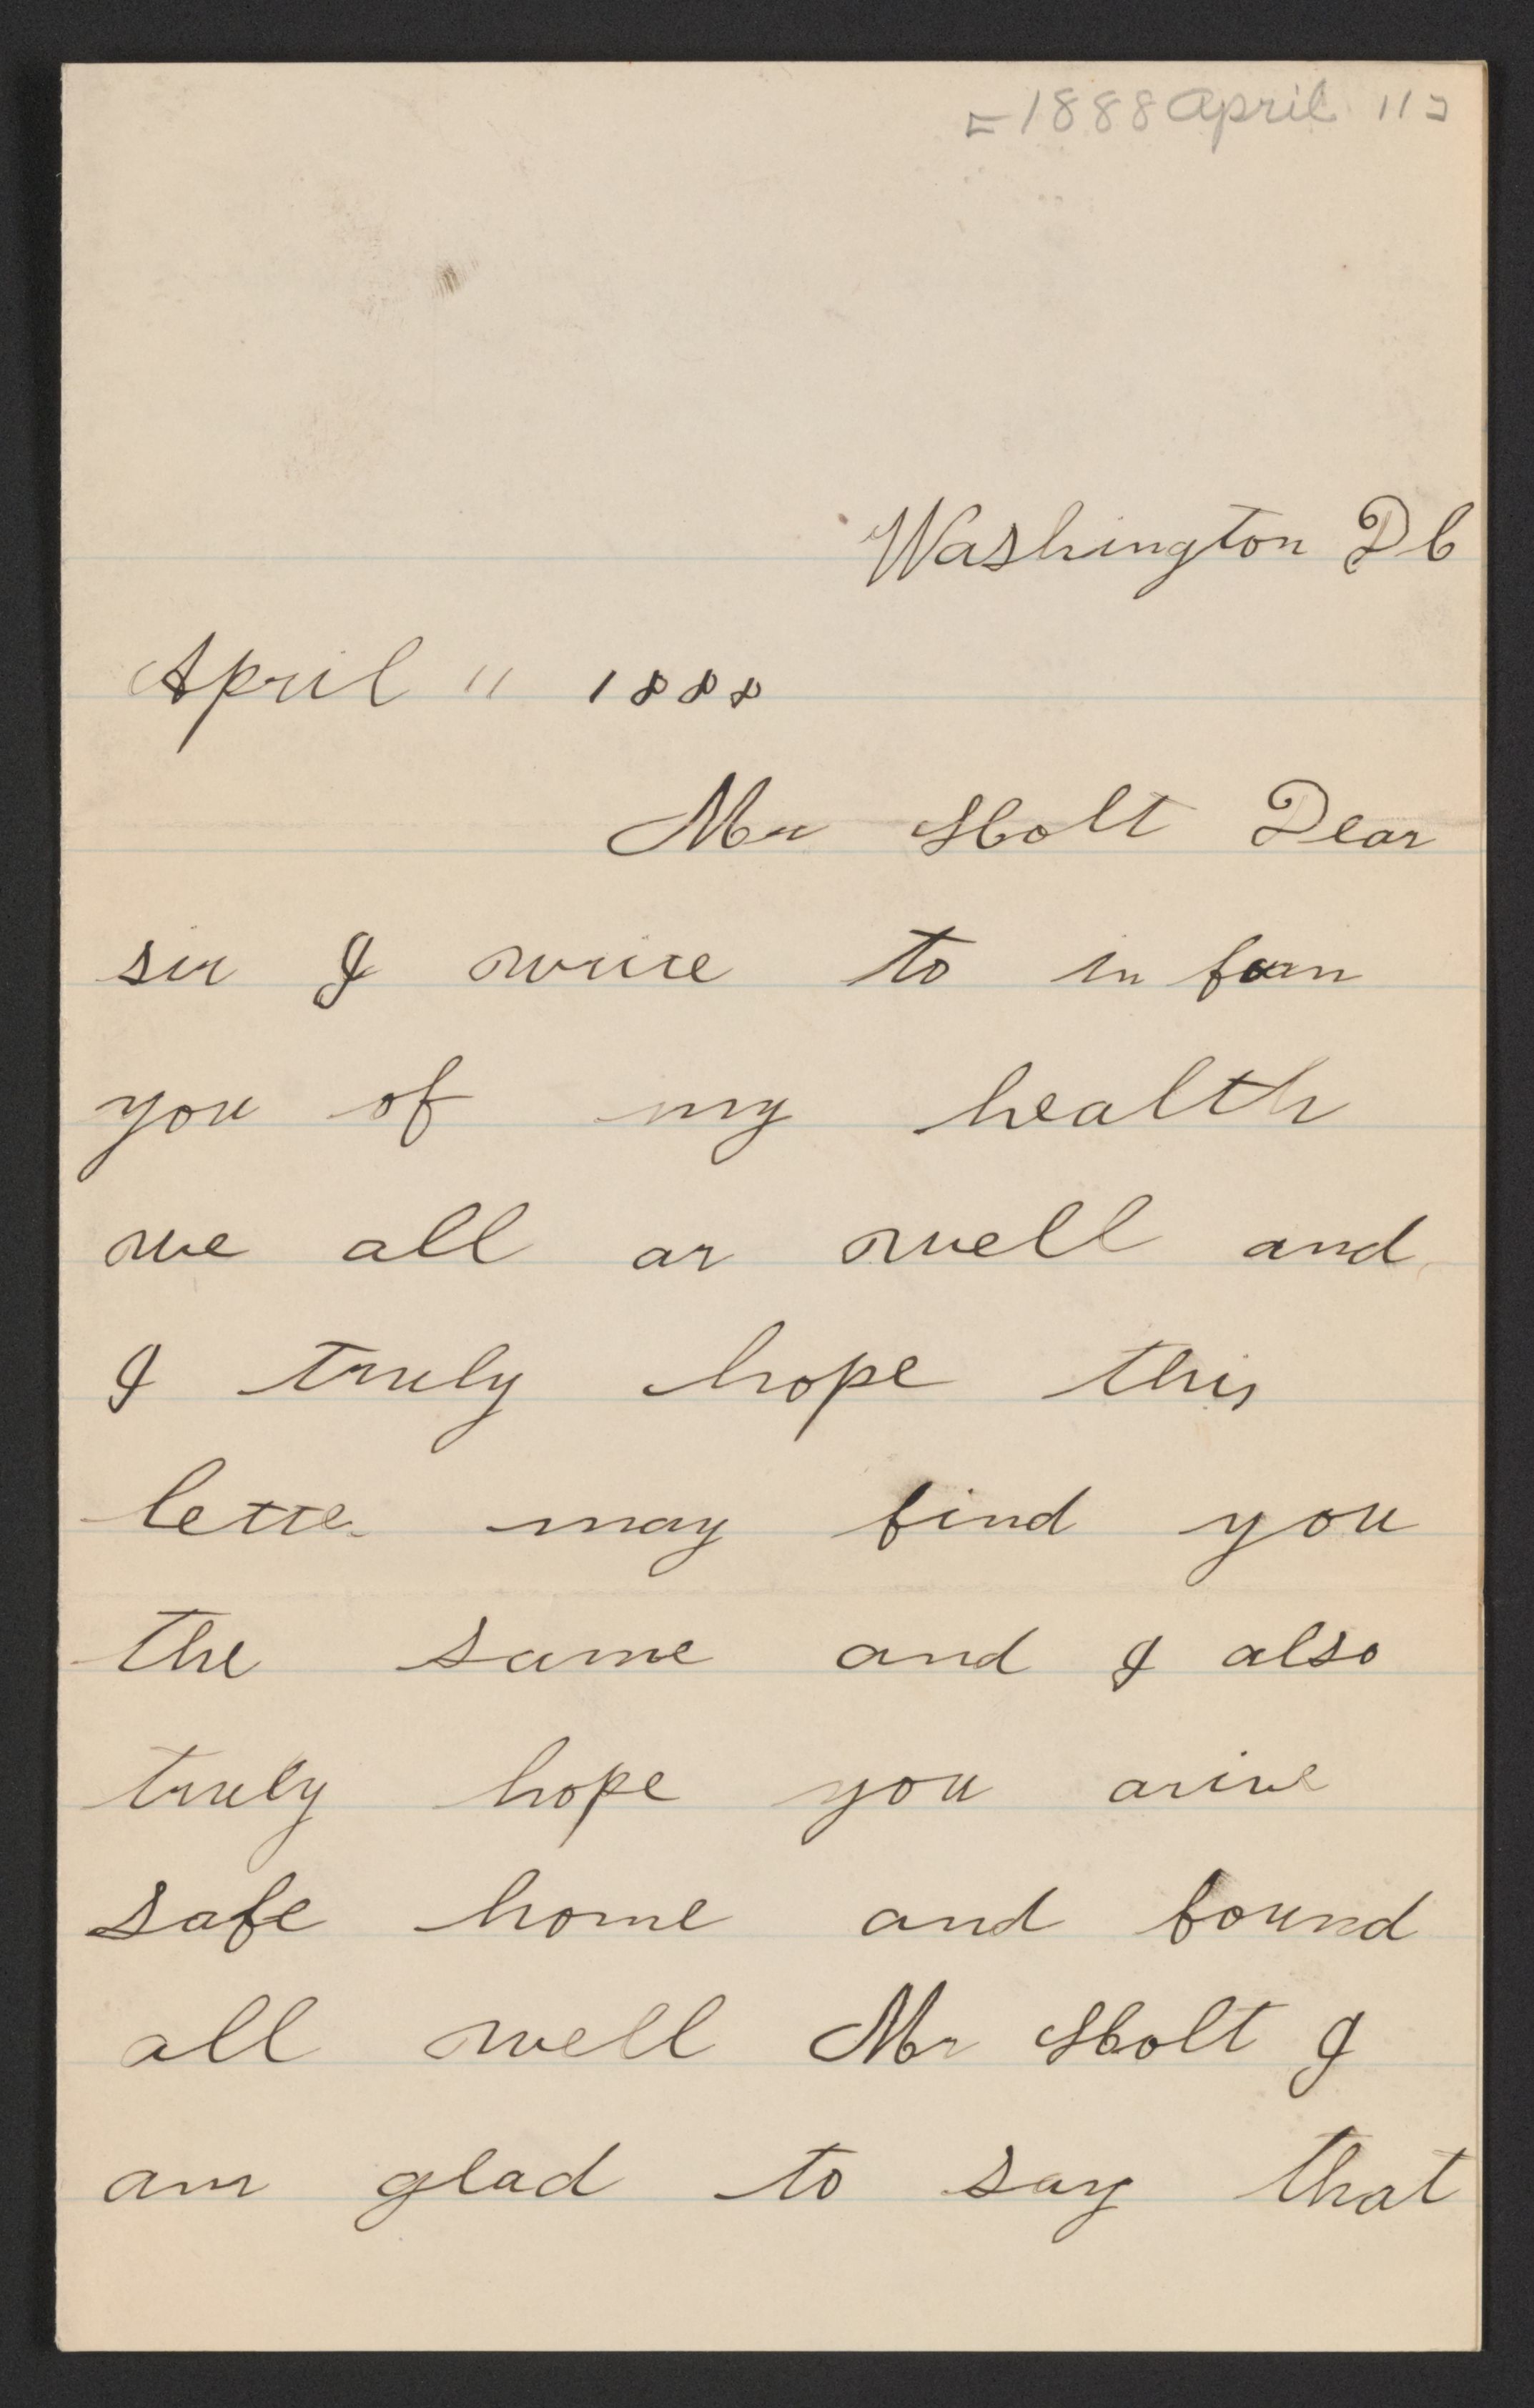 [1888 April 11]
Washington DC
April 11 1888
Mr Holt Dear
sir I write to in form
you of my health
we all ar well and
I truly hope this
letter may find you
the same and I also
truly hope you arive
safe home and found
all well Mr Holt I
am glad to say that